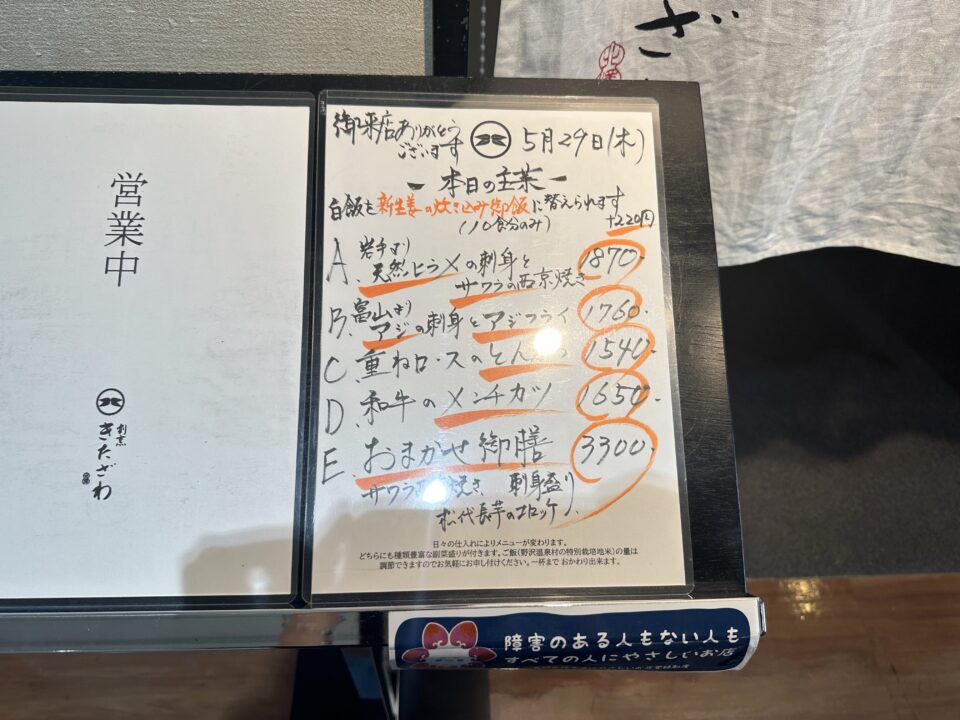 ざ
営業中
割烹
きたざわ
御来店ありがとう
ございます
5月29日(木)
ー本日の主菜ー
白飯を新生姜の炊き込み御飯に替えられます
(10食分のみ)
+220円
A、岩手より
天然ヒラメの刺身と
サワラの西京焼き
1870-
B、富山より
アジの刺身とアジフライ
1760-
C、重ねロースのとん
1540-
D、和牛のメンチカツ
1650-
E、おまかせ御膳
3300-
サワラ 焼き、刺身盛り
松代長芋のコロッケ、
日々の仕入れによりメニューが変わります。
どちらにも種類豊富な副菜盛りが付きます。ご飯(野沢温泉村の特別栽培地米)の量は
調節できますのでお気軽にお申し付けください。一杯まで おかわり出来ます。
障害のある人もない人も
すべての人にやさしいお店